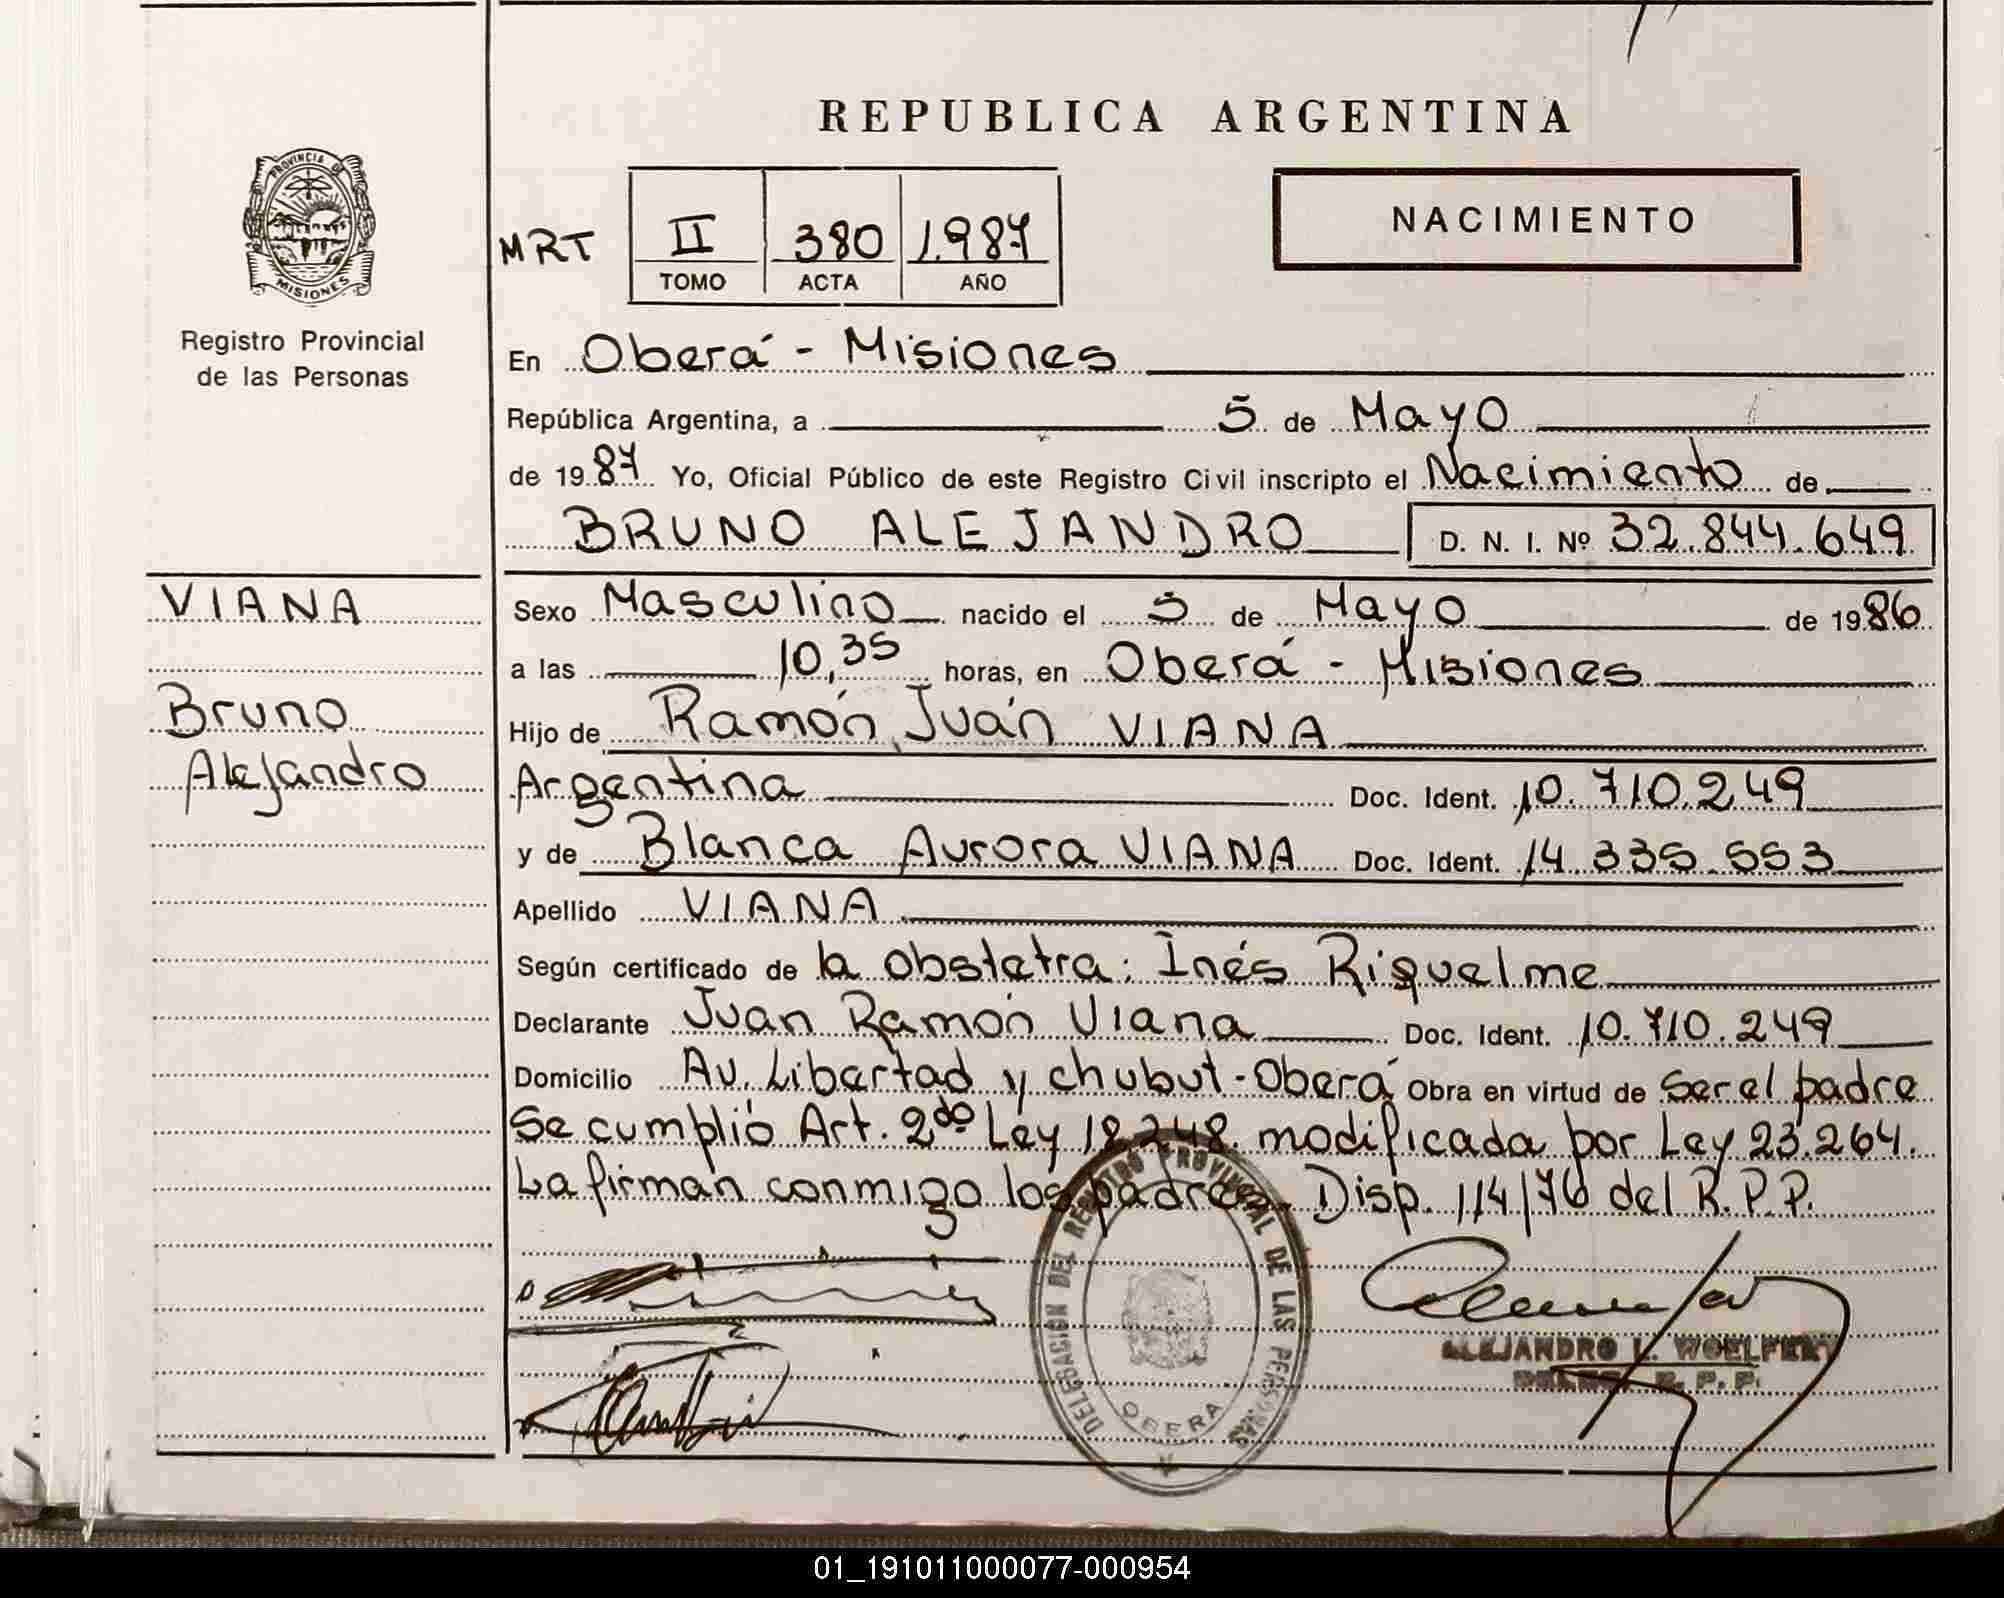 REPUBLICA ARGENTINA
PROVINCIA DE
MISIONES
Registro Provincial
de las Personas
NACIMIENTO
MRT II 380 1.987
TOMO ACTA AÑO
En Oberá - Misiones
República Argentina, a 5 de Mayo
de 19 87 Yo, Oficial Público de este Registro Civil inscripto el Nacimiento de
BRUNO ALEJANDRO D. N. I. Nº 32.844.649
VIANA
Bruno
Alejandro
Sexo Masculino nacido el 5 de Mayo de 19 86
a las 10,35 horas, en Oberá - Misiones
Hijo de Ramón Juan VIANA
Argentina Doc. Ident. 10.710.249
y de Blanca Aurora VIANA Doc. Ident. 14.335.553
Apellido VIANA
Según certificado de la obstetra: Inés Riquelme
Declarante Juan Ramón Viana Doc. Ident. 10.710.249
Domicilio Av. Libertad y chubut - Oberá Obra en virtud de Ser el padre
Se cumplió Art. 2do Ley 18.248. modificada por Ley 23.264.
La firman conmigo los padres. Disp. 114/76 del R.P.P.
DELEGACION DEL REGISTRO PROVINCIAL DE LAS PERSONAS
OBERA
ALEJANDRO L.
R. P. P.
01_191011000077-000954